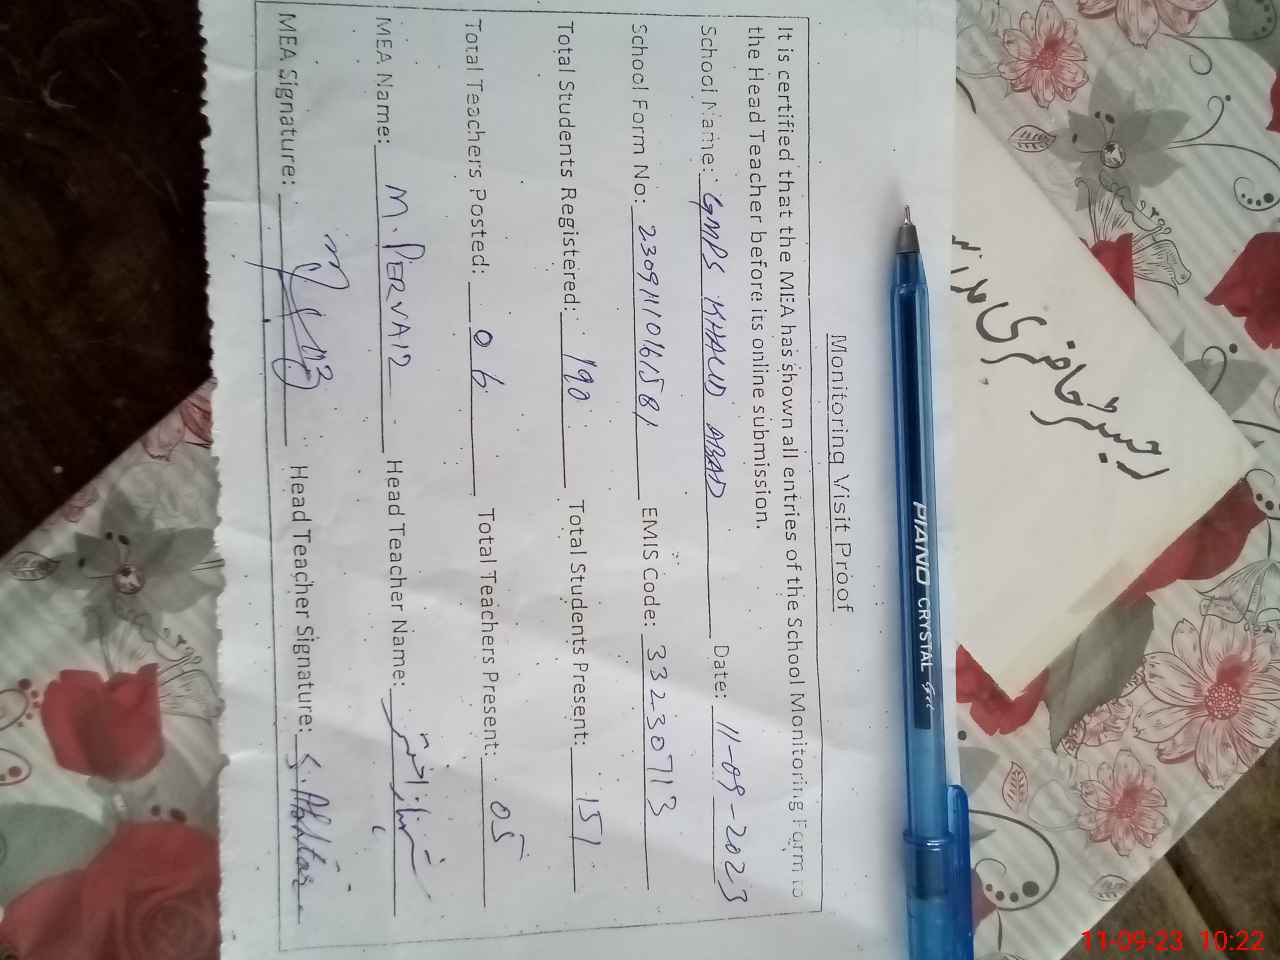 Monitoring Visit Proof
It is certified that the MEA has shown all entries of the School Monitoring Form to
the Head Teacher before its online submission.
School Name: GMPS KHALID ABAD Date: 11-09-2023
School Form No: EMIS Code: 33230713
Total Students Registered: 190 Total Students Present: 151
Total Teachers Posted: 06 Total Teachers Present: 05
MEA Name: M. PERVAIZ Head Teacher Name:
MEA Signature: Head Teacher Signature: S. Akhtar
PIANO CRYSTAL Gel
رجسٹر حاضری
11-09-23 10:22